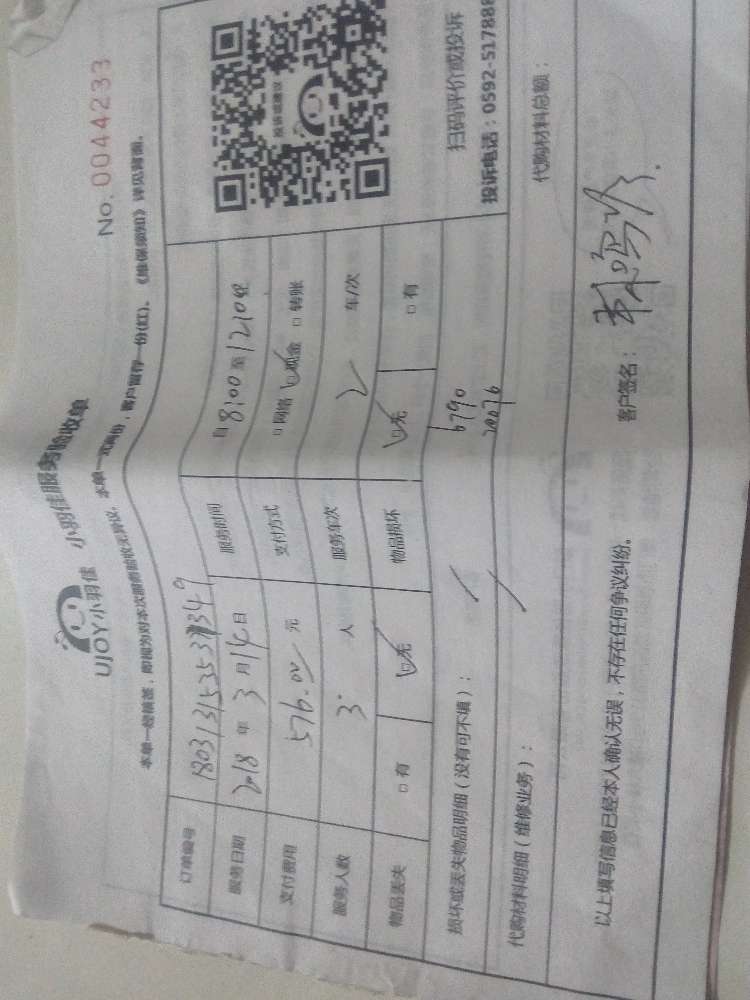 No. 0044233
UJOY小羽佳 小羽佳服务验收单
本单一经核签，即视为对本次服务验收无异议。本单一式两份，客户留存一份(红)。《维保须知》详见背面。
订单编号
服务日期 2018 年 3 月 14 日 服务时间 自 8:00 至 12:10
支付费用 576.00 元 支付方式 □ 网络 ☑ 现金 □ 转账
服务人数 3 人 服务车次 2 车/次
物品丢失 □ 有 ☑ 无 物品损坏 ☑ 无 □ 有
投诉或建议
扫码评价或投诉
投诉电话：0592-517888
损坏或丢失物品明细（没有可不填）： / 6790
代购材料明细（维修业务）： / 20076
代购材料总额：
以上填写信息已经本人确认无误，不存在任何争议纠纷。 客户签名：